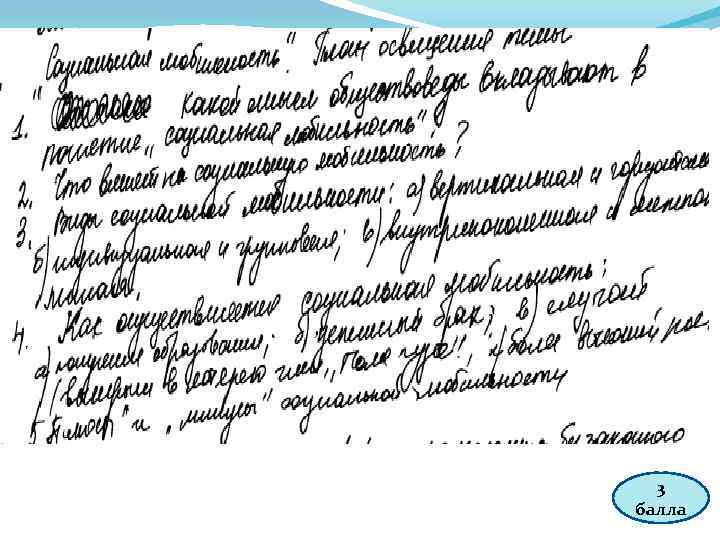 Социальная мобильность". План освещения темы
1. " какой смысл обществоведы вкладывают в
понятие „социальная мобильность"?
2. Что влияет на социальную мобильность?
3. Виды социальной мобильности: а) вертикальная и
б) индивидуальная и групповая; в) внутрипоколенная и
4. Как осуществляется социальная мобильность:
а) получение образования; б) успешный брак; в) случай
(выигрыш в лотерею или „Поле чудес"; г) более высокий
5. „Плюсы" и „минусы" социальной мобильности
законного
3
балла